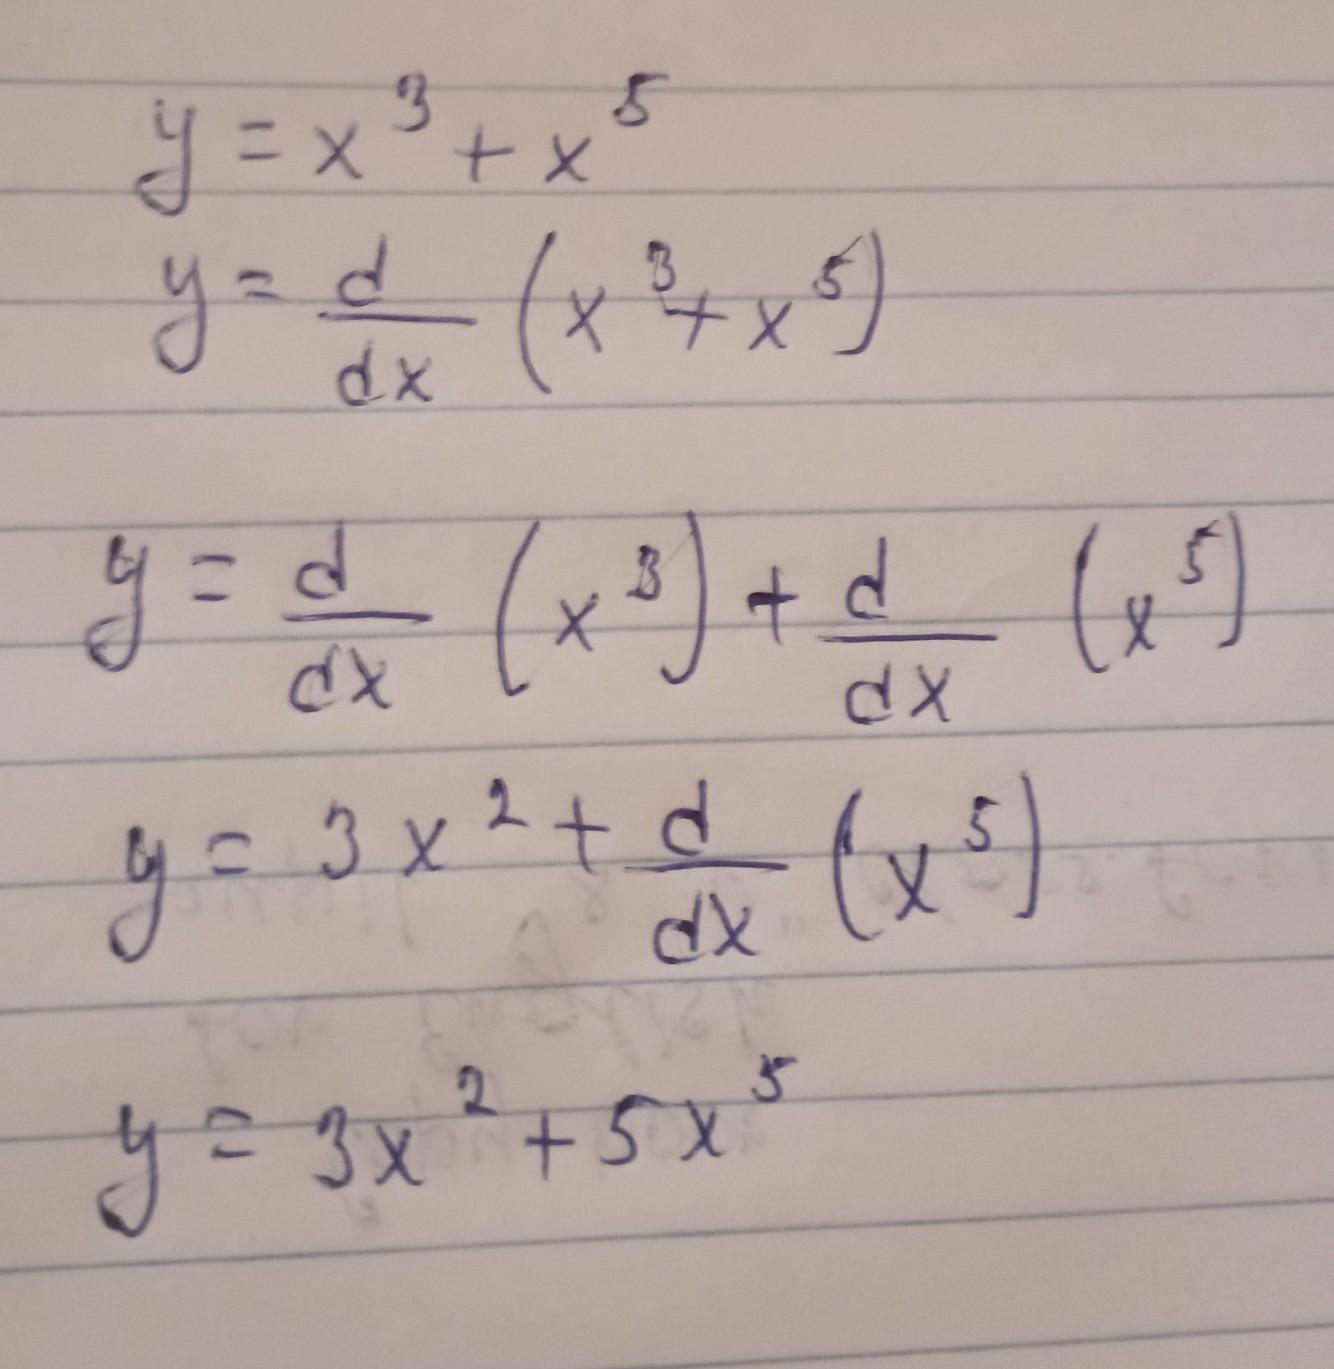 y = x³ + x⁵
y = d/dx (x³ + x⁵)
y = d/dx (x³) + d/dx (x⁵)
y = 3x² + d/dx (x⁵)
y = 3x² + 5x⁵